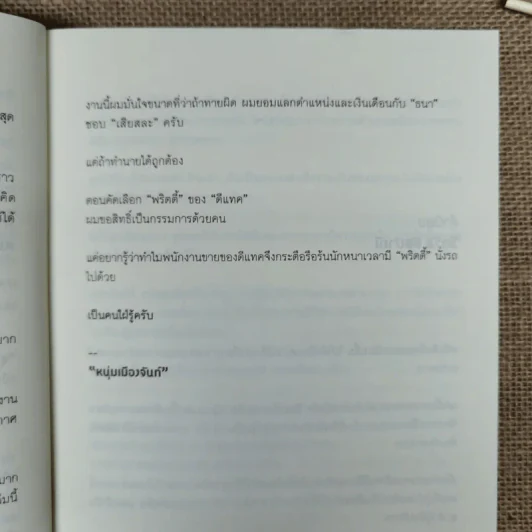 สุด
าว
คิด
ได้
มาก
งาน
กาศ
มาก
งานนี้ผมมั่นใจขนาดที่ว่าถ้าทายผิด ผมยอมแลกตำแหน่งและเงินเดือนกับ “ธนา”
ชอบ “เสียสละ” ครับ
แต่ถ้าทำนายได้ถูกต้อง
ตอนคัดเลือก “พริตตี้” ของ “ดีแทค”
ผมขอสิทธิ์เป็นกรรมการด้วยคน
แค่อยากรู้ว่าทำไมพนักงานขายของดีแทคจึงกระตือรือร้นนักหนาเวลามี “พริตตี้” นั่งรถ
ไปด้วย
เป็นคนใฝ่รู้ครับ
—
“หนุ่มเมืองจันท์”